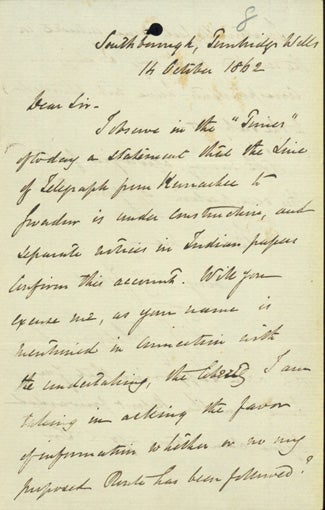 8
Southborough, Tunbridge Wells
14 October 1862
Dear Sir-
I observe in the "Times"
of today a statement that the Line
of Telegraph from Kurrachee to
Gwadur is under construction, and
separate notices in Indian papers
confirm this account. Will you
excuse me, as your name is
mentioned in connection with
the undertaking, the liberty I am
taking in asking the favor
of information whether or no my
proposed Route has been followed?